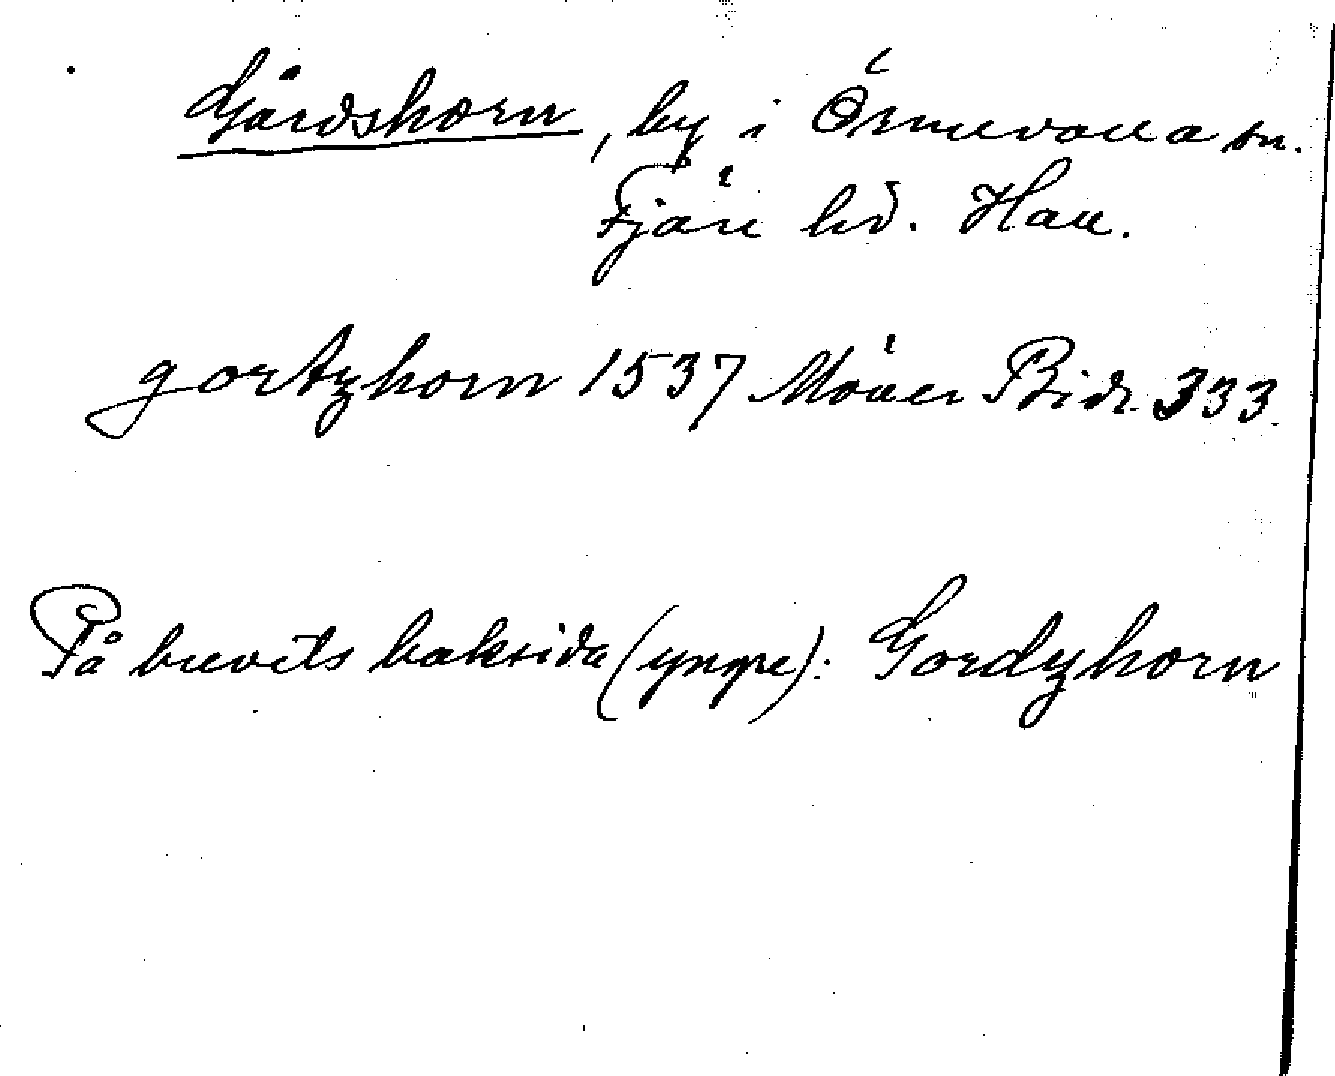 Gårdshorn, by i Örmevalla sn.
Fjäre hd. Hall.
gortzhorn 1537 Möller Bidr. 333
På brevets baksida (yngre): Gordzhorn